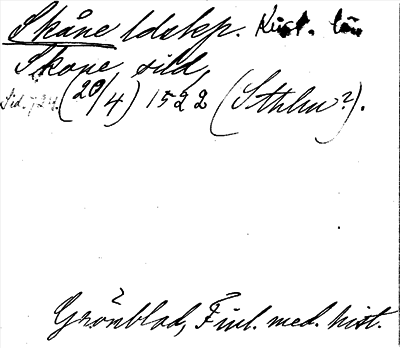 Skåne ldskp. Krist. län
Skone sild,
(20/4) 1522 (Sthlm?).
Grönblad, Finl. med. hist.